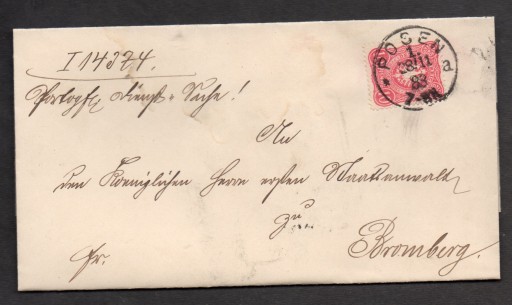 I 14374.
Portopfl. Dienst-Sache!
POSEN
1.
28/11
83
7-8N.
a
An
den Koeniglichen Herrn ersten Staatsanwalt
zu
Bromberg.
Fr.